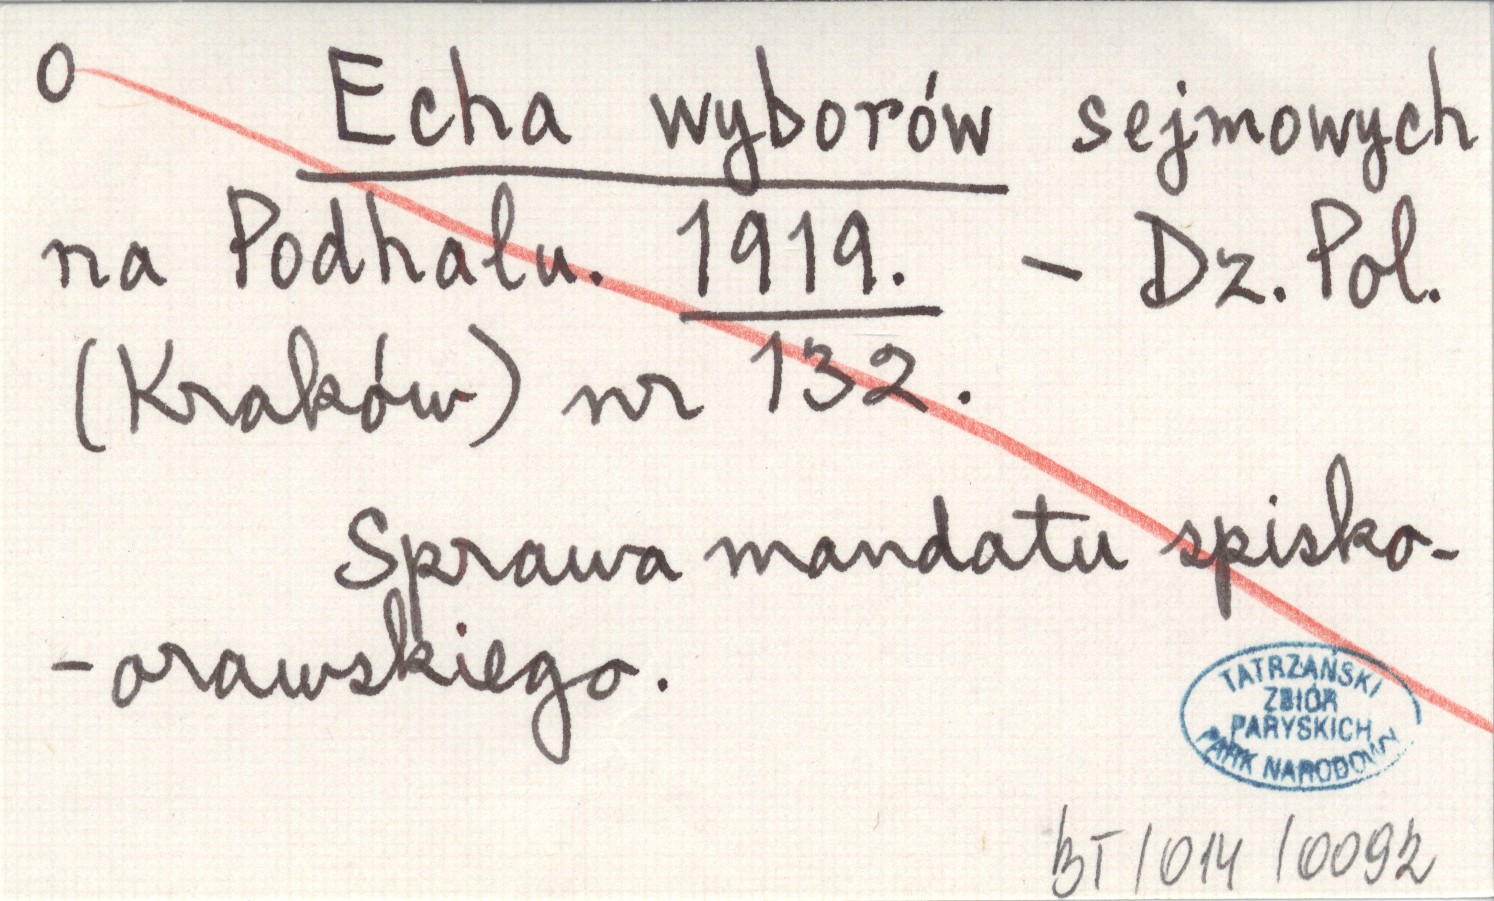 O Echa wyborów sejmowych
na Podhalu. 1919. - Dz. Pol.
(Kraków) nr 132.
Sprawa mandatu spisko-
-orawskiego.
TATRZAŃSKI
ZBIÓR
PARYSKICH
PARK NARODOWY
BT/014/0092